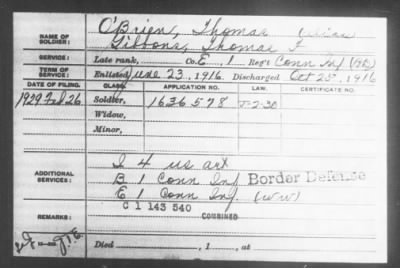 NAME OF SOLDIER: O'Brien, Thomas alias
Gibbons, Thomas F
SERVICE: Late rank, Co. E, 1 Reg't Conn Inf (NG)
TERM OF SERVICE: Enlisted June 23, 1916. Discharged Oct 25, 1916
DATE OF FILING. CLASS. APPLICATION NO. LAW. CERTIFICATE NO.
1929 Feb 26 Soldier, 1636578 J-2-30
Widow,
Minor,
ADDITIONAL SERVICES: I 4 US art
B 1 Conn Inf Border Defense
E 1 Conn Inf. (WW)
C 1 143 540
REMARKS: COMBINED
Died , 1 , at